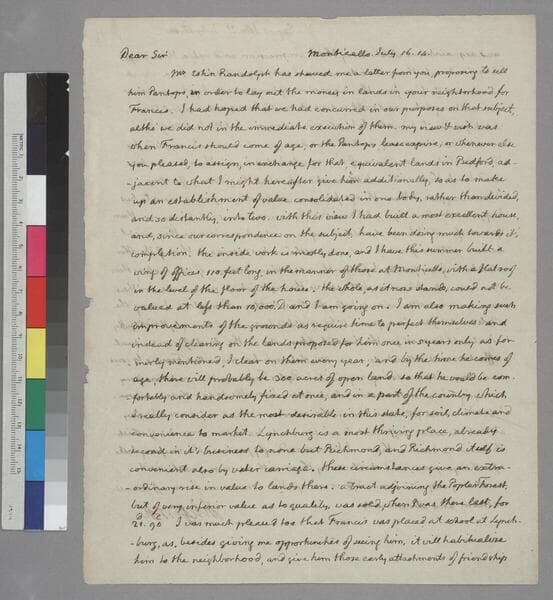 Dear Sir Monticello July 16. 14.
Mr Eston Randolph has shewed me a letter from you, proposing to sell
him Pantops, in order to lay out the money in lands in your neighborhood for
Francis. I had hoped that we had concurred in our purposes on that subject,
altho we did not in the immediate execution of them. my view & wish was
when Francis should come of age, or the Pantops lease expire, or whenever else
you pleased, to assign, in exchange for that, equivalent lands in Bedford, ad-
-jacent to what I might hereafter give him additionally, so as to make
up an establishment of value consolidated in one body, rather than divided,
and so distantly, into two. with this view I had built a most excellent house,
and, since our correspondence on the subject, have been doing much towards it's
completion. the inside work is mostly done, and I have this summer built a
wing of offices 110. feet long, in the manner of those at Monticello, with a flat roof
in the level of the floor of the house. the whole, as it now stands, could not be
valued at less than 10,000. D and I am going on. I am also making such
improvements of the grounds as require time to perfect themselves: and
instead of clearing on the lands proposed for him once in 3 years only as for-
merly mentioned, I clear on them every year; and by the time he comes of
age, there will probably be 300 acres of open land. so that he would be com-
fortably and handsomely fixed at once, and in a part of the country which
I really consider as the most desirable in this state, for soil, climate and
convenience to market. Lynchburg is a most thriving place, already
second in it's business to none but Richmond, and Richmond itself is
convenient also by water carriage. these circumstances give an extra-
-ordinary rise in value to lands there. a tract adjoining the Poplar Forest,
but of very inferior value as to quality, was sold, when I was there last, for
21. D 90 C I was much pleased too that Francis was placed at school at Lynch-
-burg, as, besides giving me opportunities of seeing him, it will habitualise
him to the neighborhood, and give him those early attachments of friendship